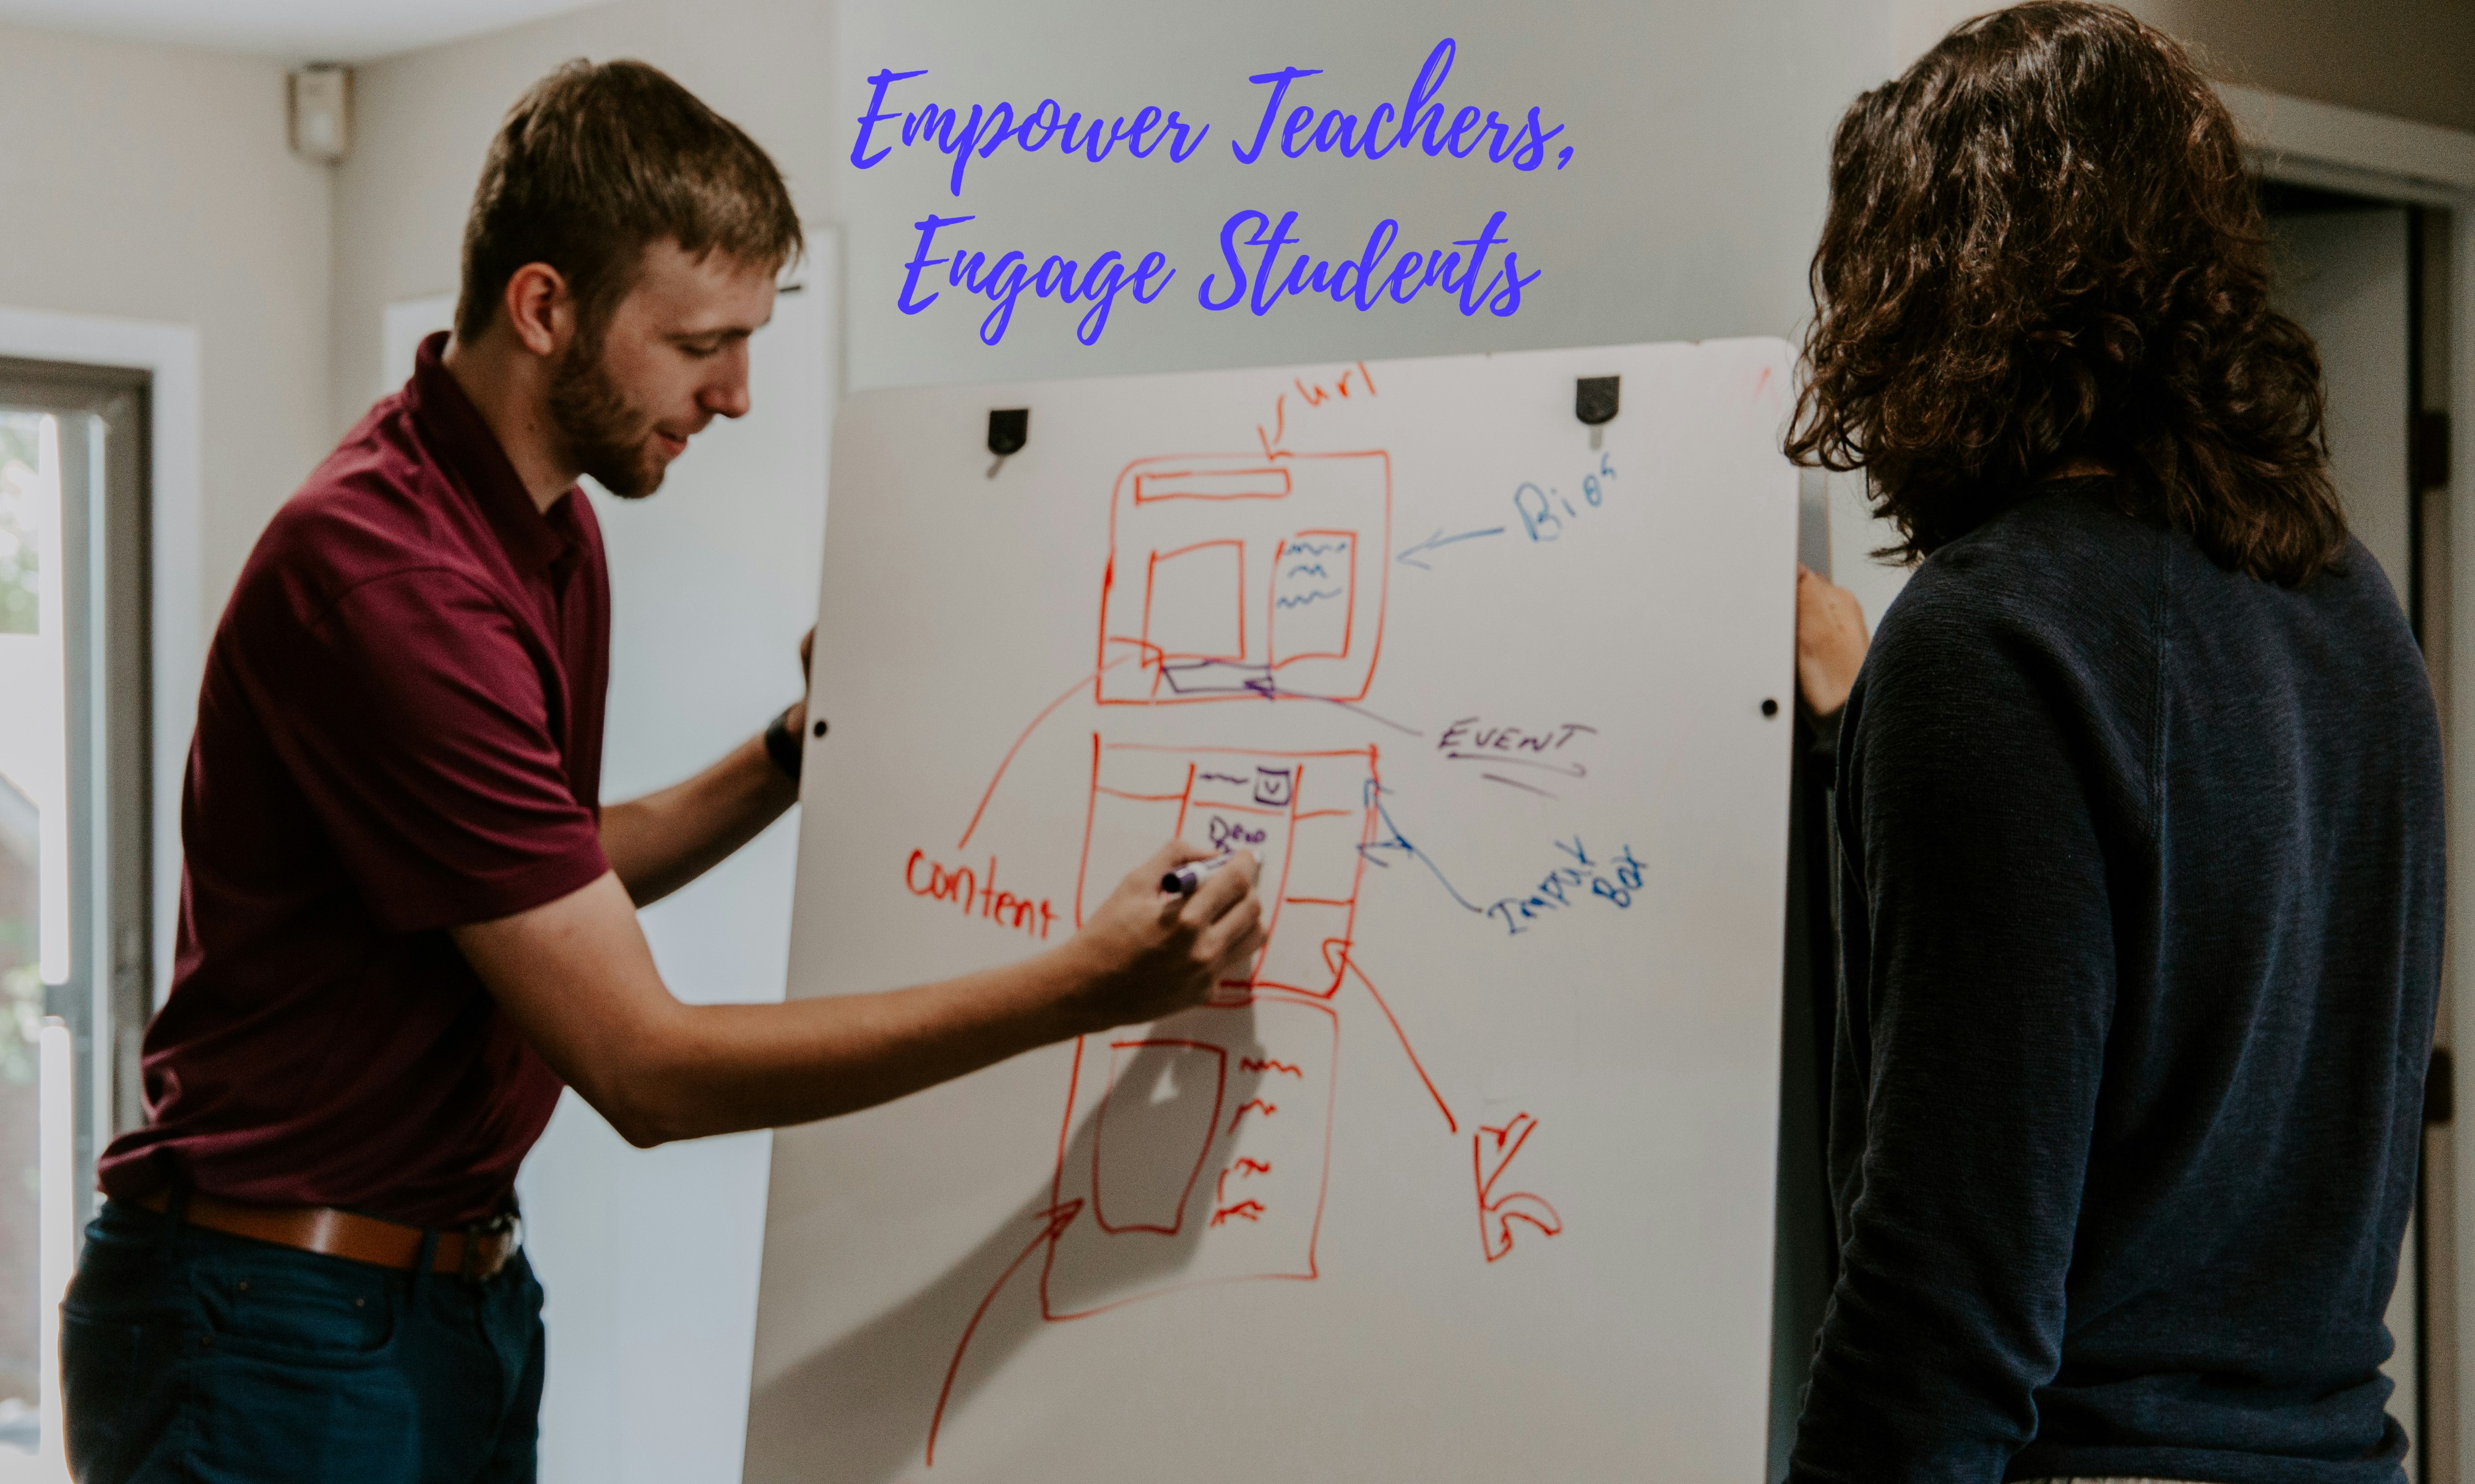 Empower Teachers,
Engage Students
url
Bios
EVENT
content
Input
Box